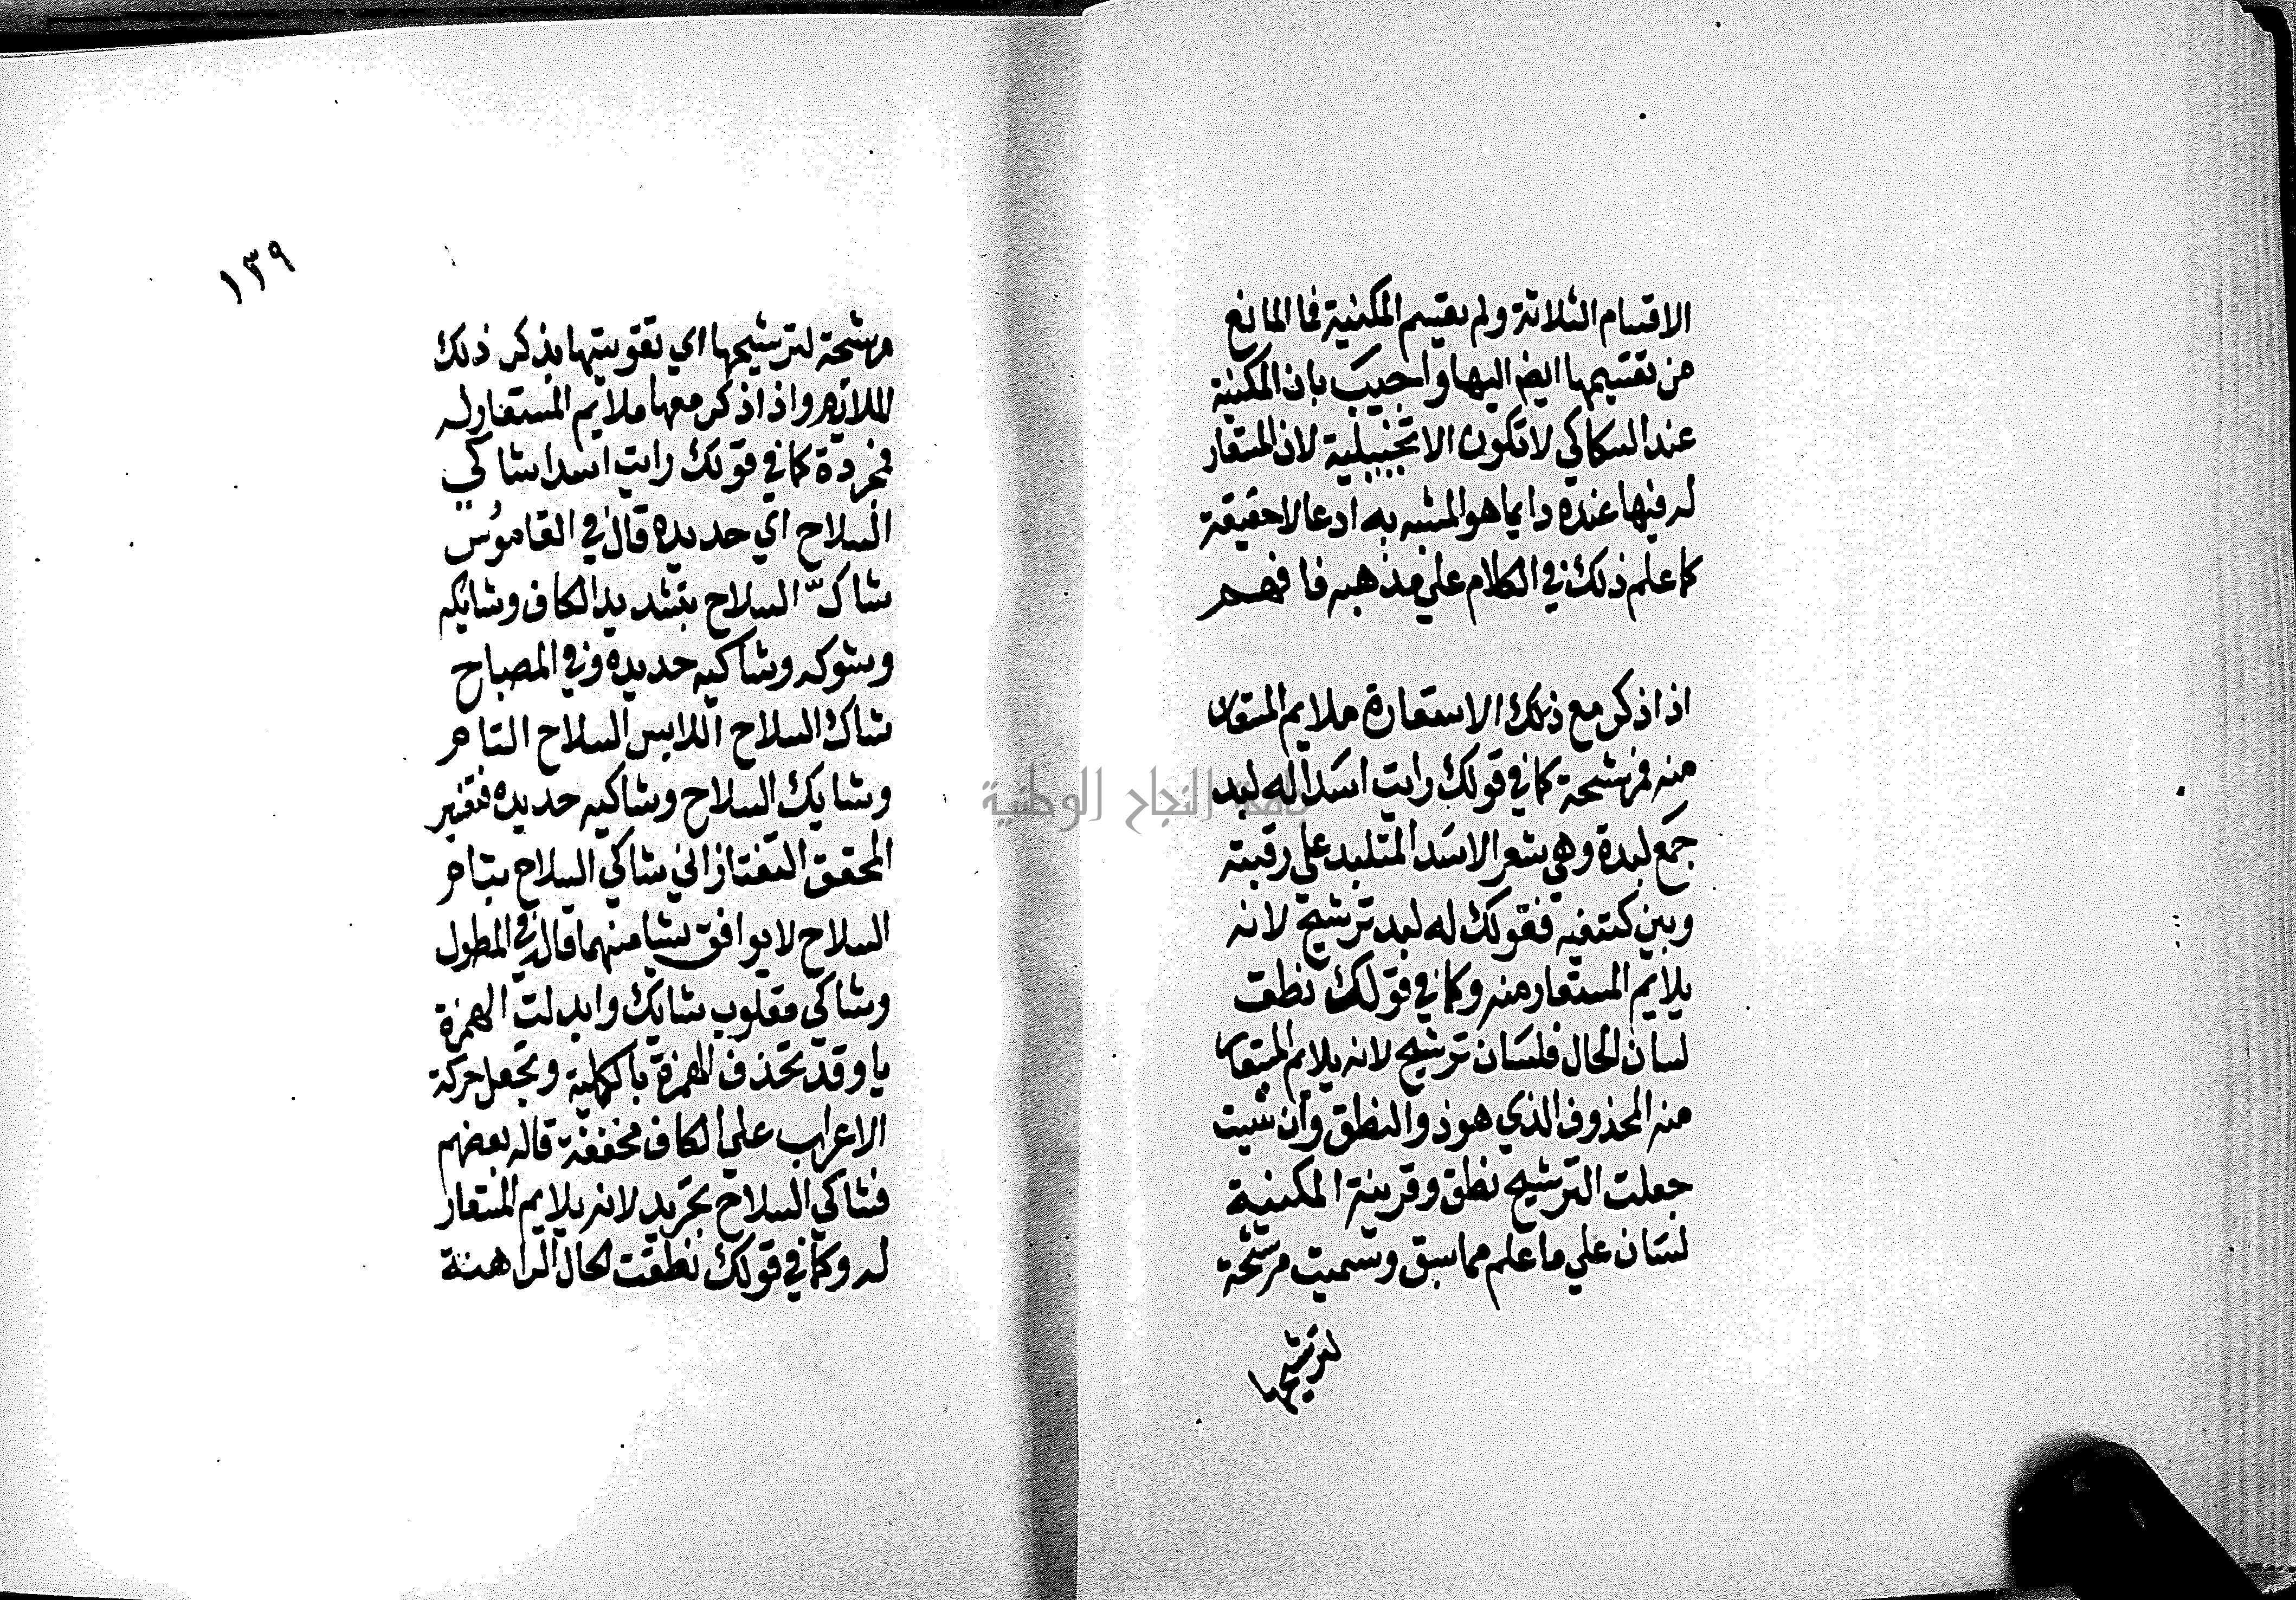 الاقسام الثلاثة ولم يقسم المكنية فما المانع
من تقسيمها ايض اليها واجيب بان المكنية
عند السكاكي لا تكون الا تخييلية لان المستعار
له فيها عنده دايما هو المشبه به ادعا لا حقيقة
كما علم ذلك في الكلام علي مذهبه فافهم
اذا ذكر مع ذلك الاستعارة ملايم المستعار
منه فمرشحة كما في قولك رايت اسدا له لبد
جمع لبدة وهي شعر الاسد المتلبد على رقبته
وبين كتفيه فقولك له لبد ترشيح لانه
يلايم المستعار منه وكما في قولك نطقت
لسان الحال فلسان ترشيح لانه يلايم المستعار
منه المحذوف الذي هو ذو النطق وان شيت
جعلت الترشيح نطق وقرينة المكنية
لسان علي ما علم مما سبق وسميت مرشحة
لترشيحها
١٣٩
مرشحة لترشيحها اي تقويتها بذكر ذلك
الملازم واذا ذكر معها ملايم المستعار له
فمجردة كما في قولك رايت اسدا شاكي
السلاح اي حديده قال في القاموس
شاكّ السلاح بتشديد الكاف وشايكه
وشوكه وشاكيه حديده وفي المصباح
شاك السلاح اللابس السلاح التام
وشايك السلاح وشاكيه حديده فتفسير
المحقق التفتازاني شاكي السلاح بتام
السلاح لا يوافق شيا منهما قال في المطول
وشاكي مقلوب شايك وابدلت الهمزة
يا وقد تحذف الهمزة بالكلية وتجعل حركة
الاعراب علي الكاف مخففة قاله بعضهم
فشاكي السلاح تجريد لانه يلايم المستعار
له وكما في قولك نطقت الحال الراهنة
جامعة النجاح الوطنية